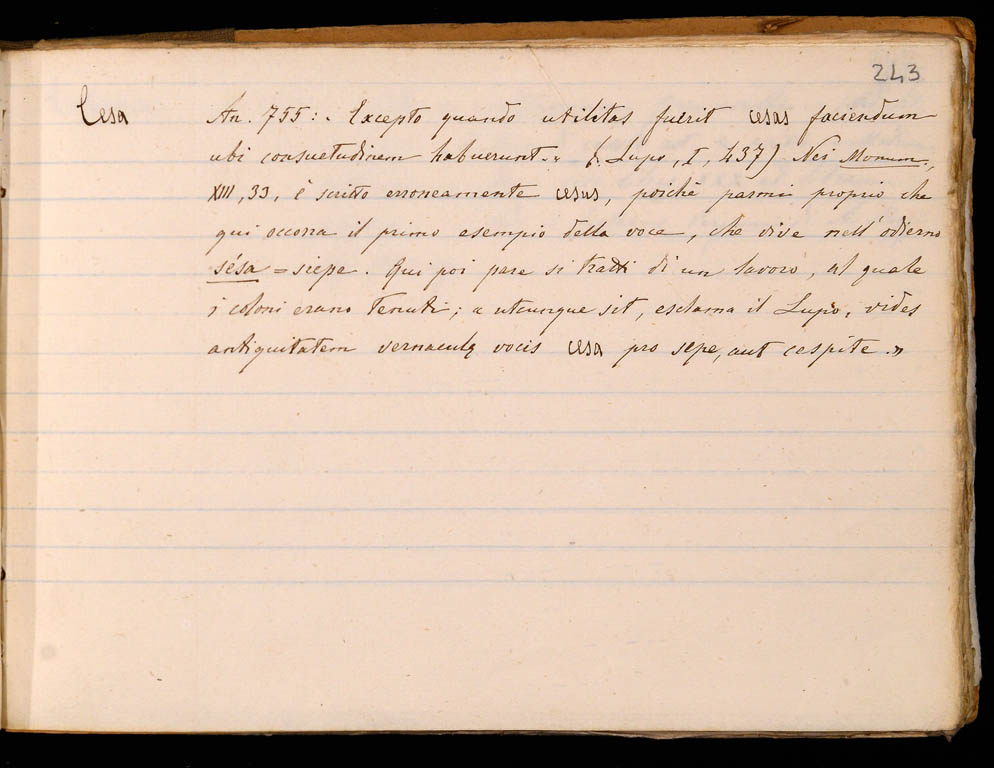 243
Cesa An. 755: « Excepto quando utilitas fuerit cesas faciendum
ubi consuetudinem habuerunt.» (Lupo, I, 437) Nei Monum.,
XIII, 33, è scritto erroneamente cesus, poichè parmi proprio che
qui occorra il primo esempio della voce, che vive nell'odierno
sésa = siepe. Qui poi pare si tratti di un lavoro, al quale
i coloni erano tenuti; « utcunque sit, esclama il Lupo, vides
antiquitatem vernaculę vocis cesa pro sepe, aut cespite.»